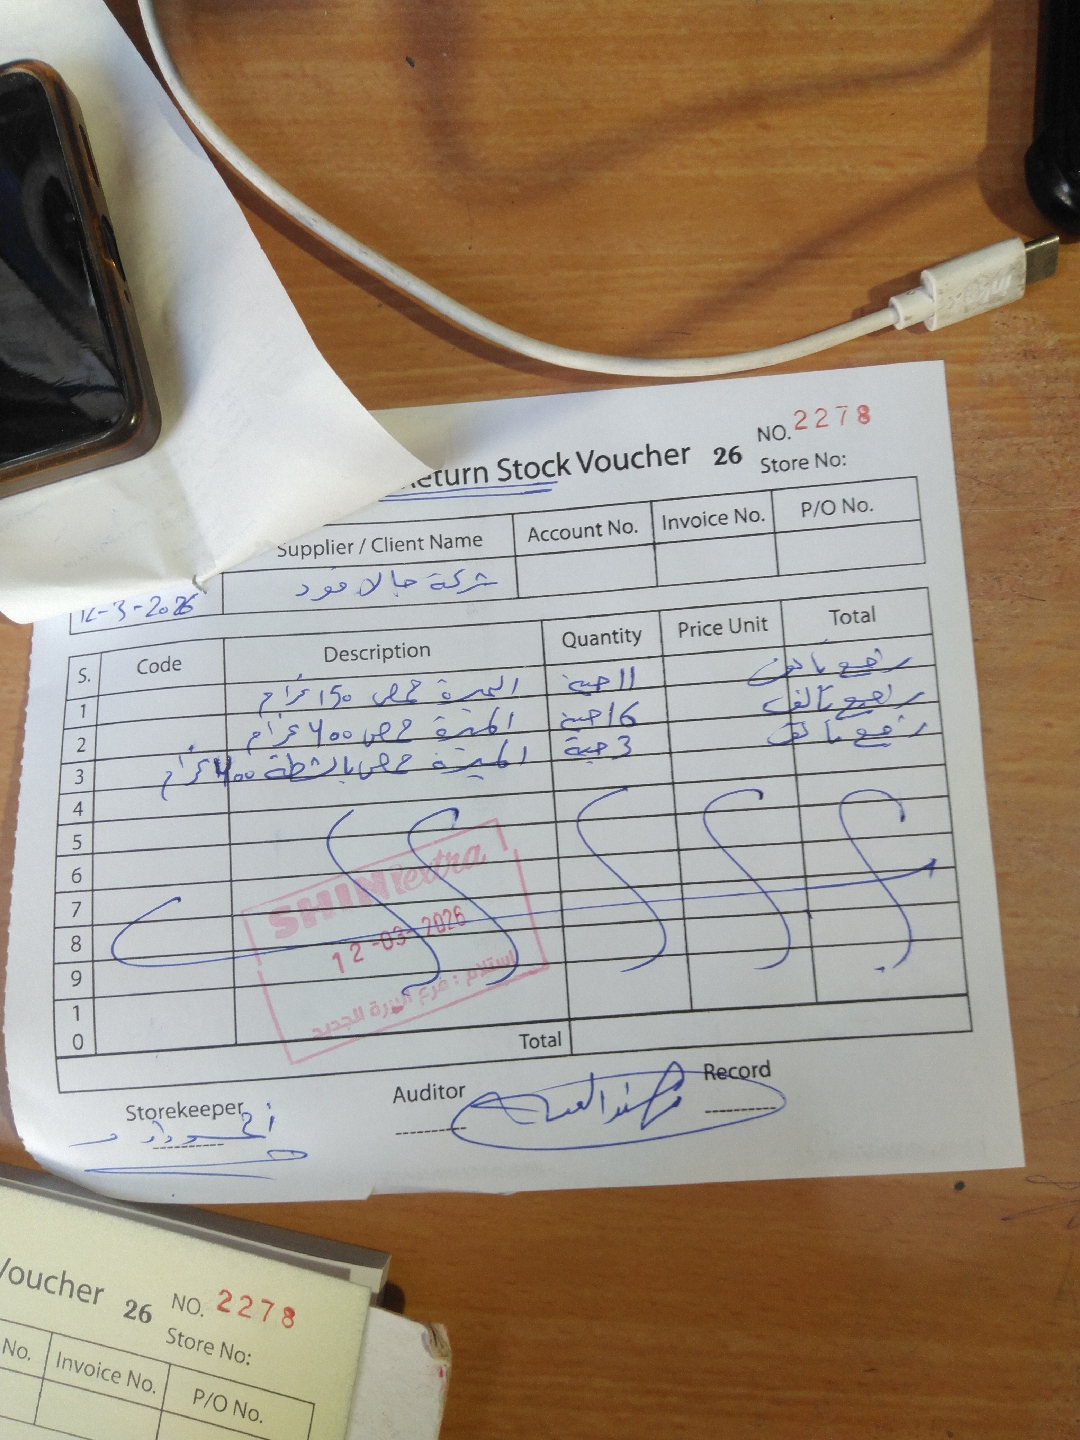 Return Stock Voucher 26
NO. 2278
Store No:
Supplier / Client Name Account No. Invoice No. P/O No.
12-3-2026 شركة جالا فود
S. Code Description Quantity Price Unit Total
1 الميزة حمص 150 غرام 11 حبة راجع تالف
2 الميزة حمص 400 غرام 16 حبة راجع تالف
3 الميزة حمص بالشطة 400 غرام 3 حبة راجع تالف
4
5
6
7
8
9
10
SHINI extra
12-03-2026
استلام : فرع
الجديد
Total
Storekeeper Auditor Record
Voucher 26 NO. 2278
Store No:
No. Invoice No. P/O No.